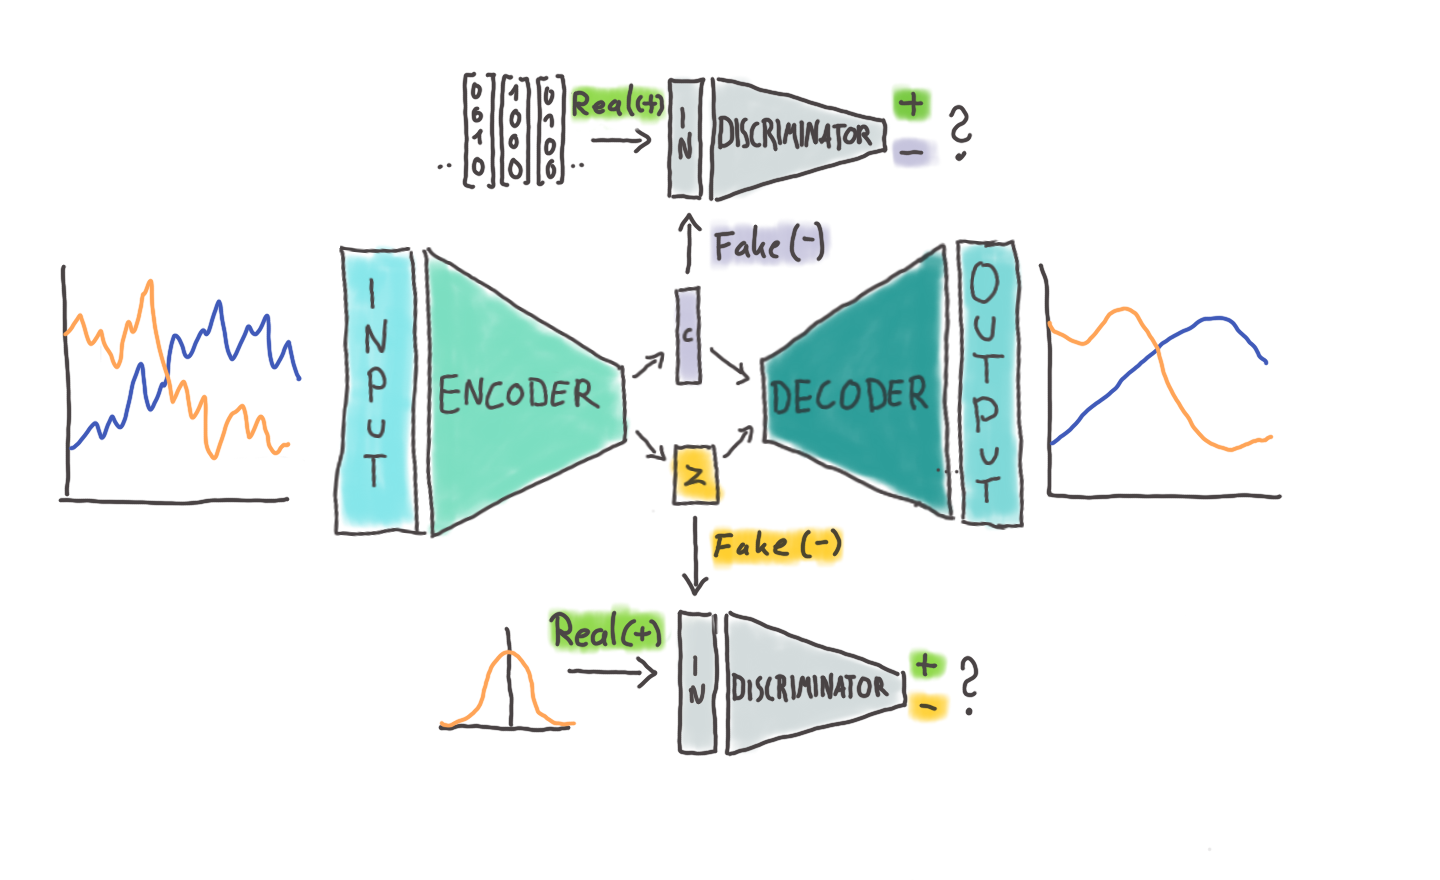 0 1 0
0 0 1
1 0 0
0 0 0
Real(+)
IN
DISCRIMINATOR
+
-
?
Fake(-)
INPUT
ENCODER
c
z
DECODER
OUTPUT
Fake(-)
Real(+)
IN
DISCRIMINATOR
+
-
?